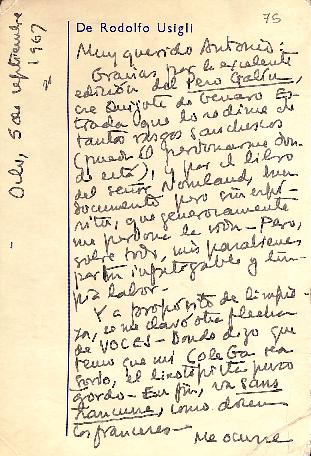 75
De Rodolfo Usigli
Oslo, 5 de septiembre
1967
Muy querido Antonio:
Gracias por la excelente
edición del Pero Galín,
ese Quijote de Genaro Es-
trada que lo redime de
tantos rasgos sanchescos
(pueda él perdonarme don-
de esté), y por el libro
del señor Nomland, buen
documento pero sin espí-
ritu, que generosamente
me perdona la vida - Pero,
sobre todo, mis parabienes
por tu infatigable y lim-
pia labor -
Y a propósito de limpie-
za, se me clavó otra flecha
de VOCES - Donde digo que
temo que mi colega sea
sordo, el linotipista puso
gordo - En fin, va sans
rancune, como dicen
los franceses -
Me ocurre